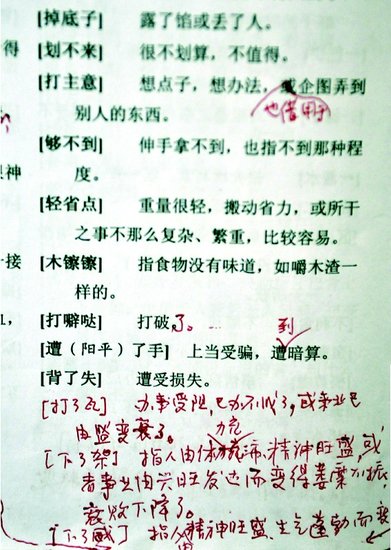 [掉底子] 露了馅或丢了人。
得 [划不来] 很不划算,不值得。
[打主意] 想点子,想办法,或企图弄到
也借用于
别人的东西。
[够不到] 伸手拿不到,也指不到那种程
神 度。
[轻省点] 重量很轻,搬动省力,或所干
之事不那么复杂、繁重,比较容易。
接 [木镲镲] 指食物没有味道,如嚼木渣一
样的。
[打噼哒] 打破了。 到
[遭(阳平)了手] 上当受骗,遭暗算。
[背了失] 遭受损失。
[打了瓦] 办事受阻,已办不成了,或事业已
由盛变衰了。
[下了架] 指人由体 精神旺盛,或
者事业由兴旺发达而变得萎 不振,
衰败下降了。
[下了威] 指人由精神旺盛、生气蓬勃而变